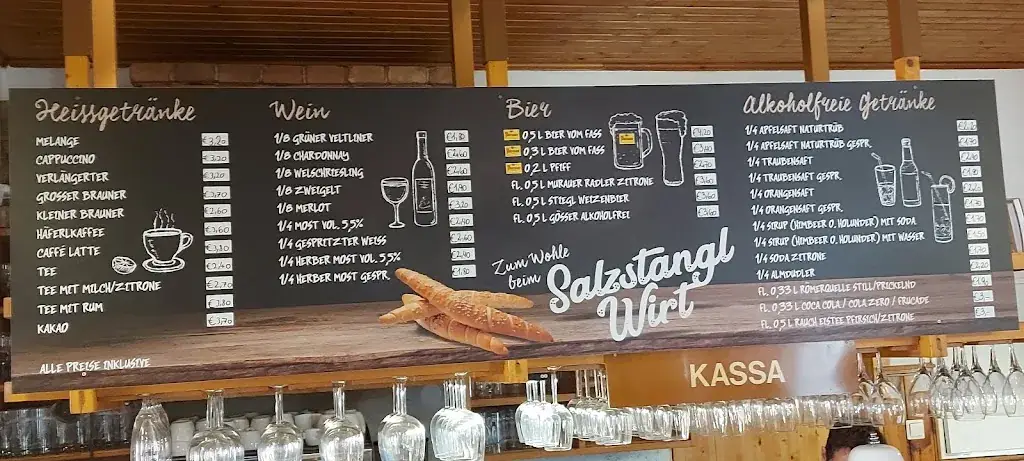 Heissgetränke
MELANGE €3,20
CAPPUCCINO €3,20
VERLÄNGERTER €3,20
GROSSER BRAUNER €3,70
KLEINER BRAUNER €2,60
HÄFERLKAFFEE €3,60
CAFFÈ LATTE €3,30
TEE €2,40
TEE MIT MILCH/ZITRONE €2,70
TEE MIT RUM €3,80
KAKAO €3,70
ALLE PREISE INKLUSIVE
Wein
1/8 GRÜNER VELTLINER €1,80
1/8 CHARDONNAY €2,60
1/8 WELSCHRIESLING €2,60
1/8 ZWEIGELT €1,90
1/8 MERLOT €3,20
1/4 MOST VOL. 5,5% €2,40
1/4 GESPRITZTER WEISS €2,60
1/4 HERBER MOST VOL. 5,5% €2,40
1/4 HERBER MOST GESPR. €1,80
Bier
0,5 L BIER VOM FASS €4,20
0,3 L BIER VOM FASS €3,40
0,2 L PFIFF €2,70
FL. 0,5 L MURAUER RADLER ZITRONE €3,60
FL. 0,5 L STIEGL WEIZENBIER
FL. 0,5 L GÖSSER ALKOHOLFREI €3,60
Zum Wohle
beim
Salzstangl
Wirt
Alkoholfreie Getränke
1/4 APFELSAFT NATURTRÜB
1/4 APFELSAFT NATURTRÜB GESPR.
1/4 TRAUBENSAFT
1/4 TRAUBENSAFT GESPR.
1/4 ORANGENSAFT
1/4 ORANGENSAFT GESPR.
1/4 SIRUP (HIMBEER O. HOLUNDER) MIT SODA
1/4 SIRUP (HIMBEER O. HOLUNDER) MIT WASSER
1/4 SODA ZITRONE
1/4 ALMDUDLER
FL. 0,33 L RÖMERQUELLE STILL/PRICKELND
FL. 0,33 L COCA COLA / COLA ZERO / FRUCADE
FL. 0,5 L RAUCH EISTEE PFIRSICH/ZITRONE
KASSA